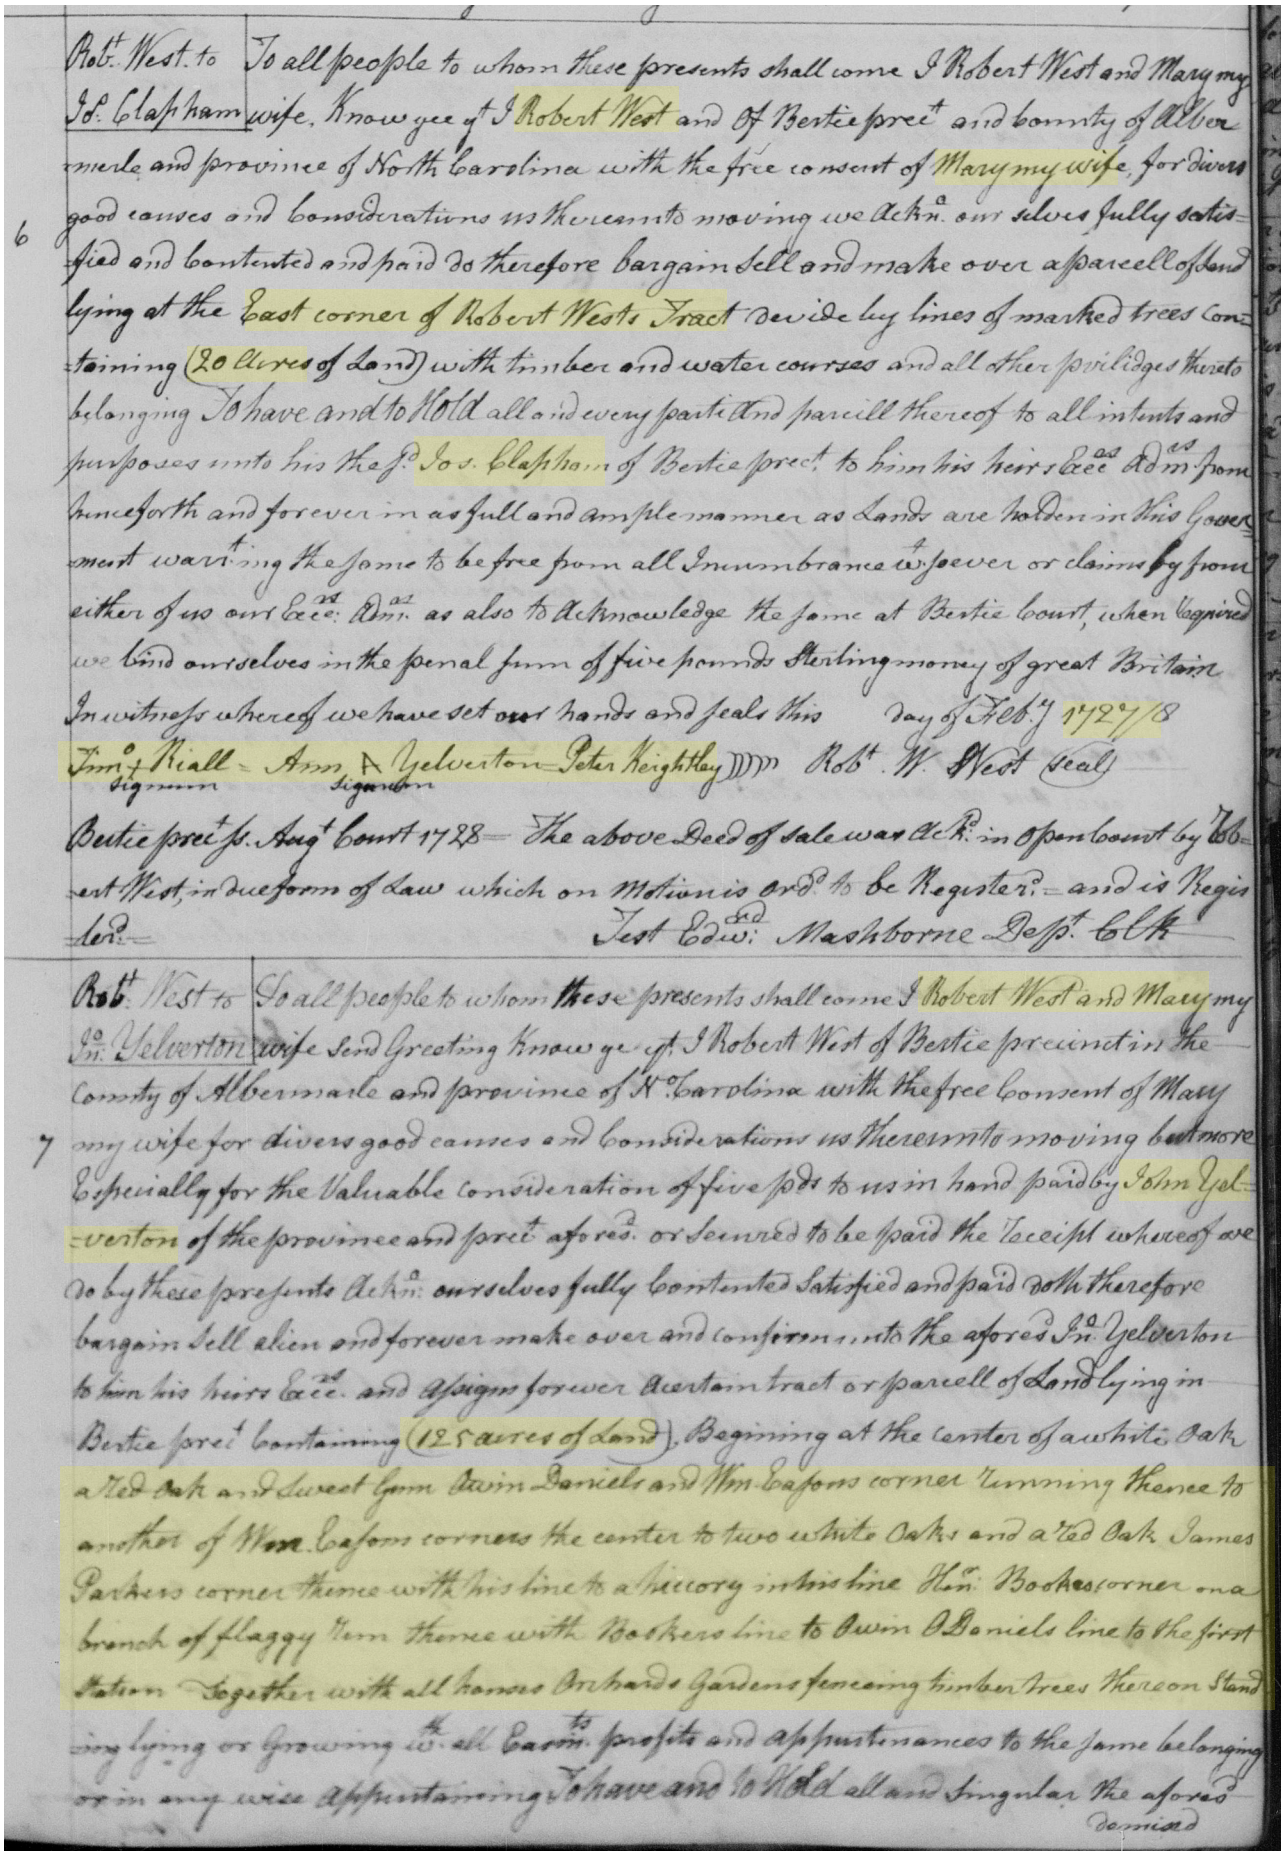 Robt. West. to To all people to whom these presents shall come I Robert West and Mary my
Js. Clapham wife. Know yee yt I Robert West and Of Bertie prect and County of Alber
-merle and province of North Carolina with the free consent of Mary my wife, for divers
good causes and Considerations us thereunto moving we Ackno. our selves fully satis=
6
-fied and Contented and paid do therefore bargain sell and make over a parcell of Land
lying at the East corner of Robert Wests Tract devide by lines of marked trees Con=
-taining (20 Acres of Land) with timber and water courses and all other privilidges thereto
belonging To have and to Hold all and every part And parcill thereof to all intents and
purposes unto his the sd. Jos. Clapham of Bertie prect. to him his heirs Exec.as Adm.as from
henceforth and forever in as full and ample manner as Lands are holden in this Gover=
-ment warrt.ing the same to be free from all Incumbrance wt.soever or claims by from
either of us our Exec.as Adm.as as also to Acknowledge the same at Bertie Court, when Required
we bind ourselves in the penal sum of five pounds Sterling money of great Britain
In witness whereof we have set our hands and seals this day of Feb.y 1727/8
Jno. + Riall = Ann A Yelverton = Peter Keightley Robt. W. West (seal)
Signum Signum
Bertie prect ss. Augt Court 1728 = The above Deed of sale was Ackd. in Open Court by Rob=
-ert West, in due form of Law which on Motion is Ordd. to be Registerd. = and is Regis
-terd. = Test Edwd.: Mashborne Dept. Clk
Robt. West to To all people to whom these presents shall come I Robert West and Mary my
Jno. Yelverton wife send Greeting Know ye yt. I Robert West of Bertie precinct in the
County of Albermarle and province of No. Carolina with the free Consent of Mary
7 my wife for divers good causes and Considerations us thereunto moving but more
Especially for the Valuable consideration of five pds to us in hand paid by John Yel=
=verton of the province and prect aforesd. or Secured to be paid the Receipt whereof we
do by these presents Ackno: ourselves fully Contented Satisfied and paid doth therefore
bargain sell alien and forever make over and confirm unto the aforesd Jno. Yelverton
to him his heirs Exec.as and Assigns forever A certain tract or parcell of Land lying in
Bertie prect Containing (125 acres of Land). Begining at the Center of a white Oak
a Red Oak and Sweet Gum Owin Daniels and Wm. Easons corner running thence to
another of Wm. Easons corners the center to two white Oaks and a Red Oak James
Parkers corner thence with his line to a hiccory in his line Henr: Bookes corner on a
branch of flaggy Run thence with Bookers line to Owin ODaniels line to the first
Station Together with all houses Orchards Gardens fenceing timber trees thereon Stand
-ing lying or Growing wth. all profits and Appurtenances to the same belonging
or in any wise Appurtaining To have and to Hold all and Singular the aforesd
demised